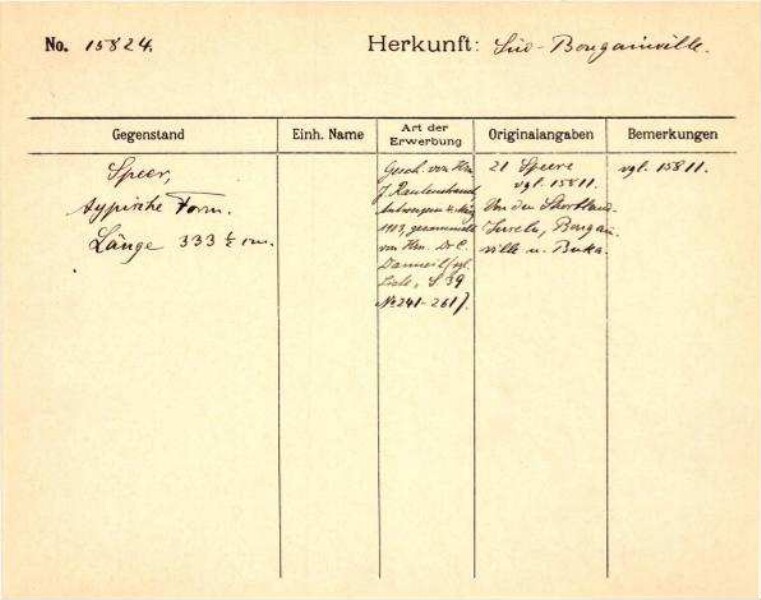 No. 15824. Herkunft: Süd-Bougainville.
Gegenstand Einh. Name Art der Erwerbung Originalangaben Bemerkungen
Speer,
typische Form.
Länge 333 ½ cm.
Gesch. von Hrn
J. Rautenstrauch,
Antwerpen
1913, gesammelt
von Hrn. Dr C.
Danneil (vgl.
Liste, S. 39
No 241-261).
21 Speere
vgl. 15811.
Von den Shortland-
Inseln, Bougain-
ville u. Buka.
vgl. 15811.